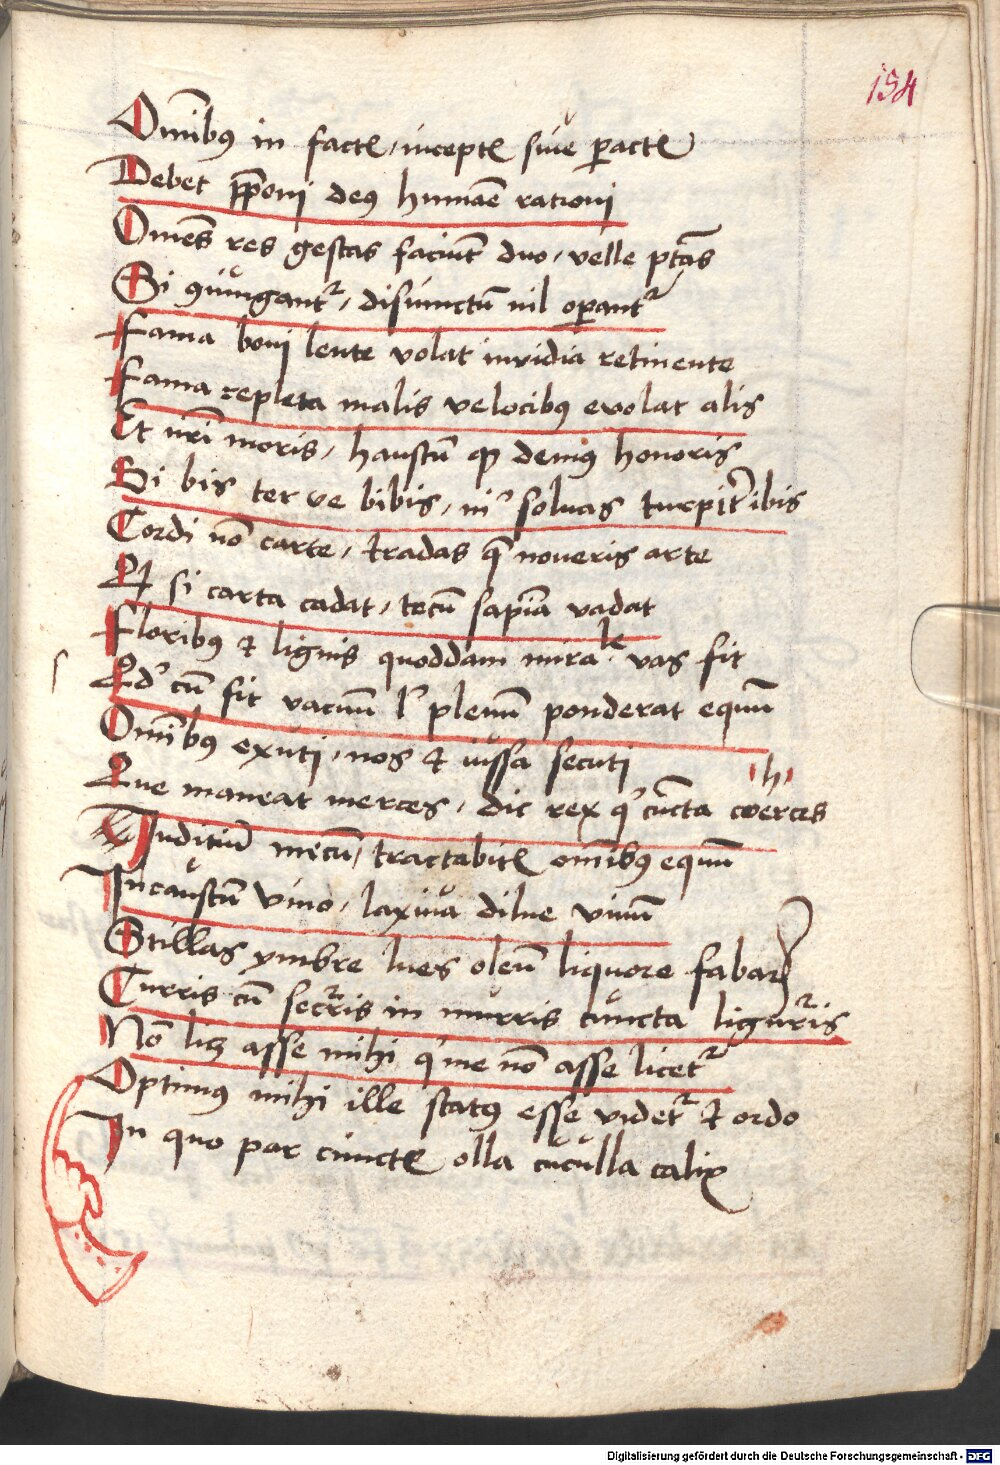 134
Om̄ibꝯ in factꝭ, inceptꝭ siue ꝑactꝭ
Debet p̄poni deꝯ humāe rationi
Om̄es res gestas faciūt duo, velle ptās
Si ꝯiungantᷣ, disiunctū nil oꝑantᷣ
Fama boni lente volat inuidia retinente
Fama repleta malis velocibꝯ evolat alis
Et nr̄i moris, haustū ꝙ demꝯ honoris
Si bis ter ve bibis, ni soluas turpit̄ ibis
Cordi nō carte, tradas q̄ noueris arte
si carta cadat, tecū sapīa vadat
Floribꝯ et lignis quoddam mirale vas fit
cū sit vacuū l' plenū ponderat equū
Om̄ibꝯ exuti, nos et iussa secuti
h
Que maneat merces, dic rex q' cūcta coerces
Iuditiū mecū, tractabitꝭ om̄ibꝯ equū
Incaustū vino, laxiua dilue vinū
Stillas ymbre lues oleū liquore fabaꝝ
Curris cū secᷣris in murris cuncta liguᷣris
Nō lis asse mihi q' me nō asse licetᷣ
Optimꝯ mihi ille statꝯ esse videtᷣ et ordo
In quo par cunctꝭ olla cuculla calix
Digitalisierung gefördert durch die Deutsche Forschungsgemeinschaft - DFG